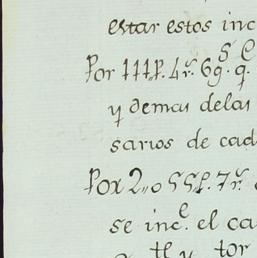 estar estos inc
Por 111p. 4r. 6g. q.
y demas delas
sarios de cad
Por 2,,055p. 7r.
se inc.e el ca